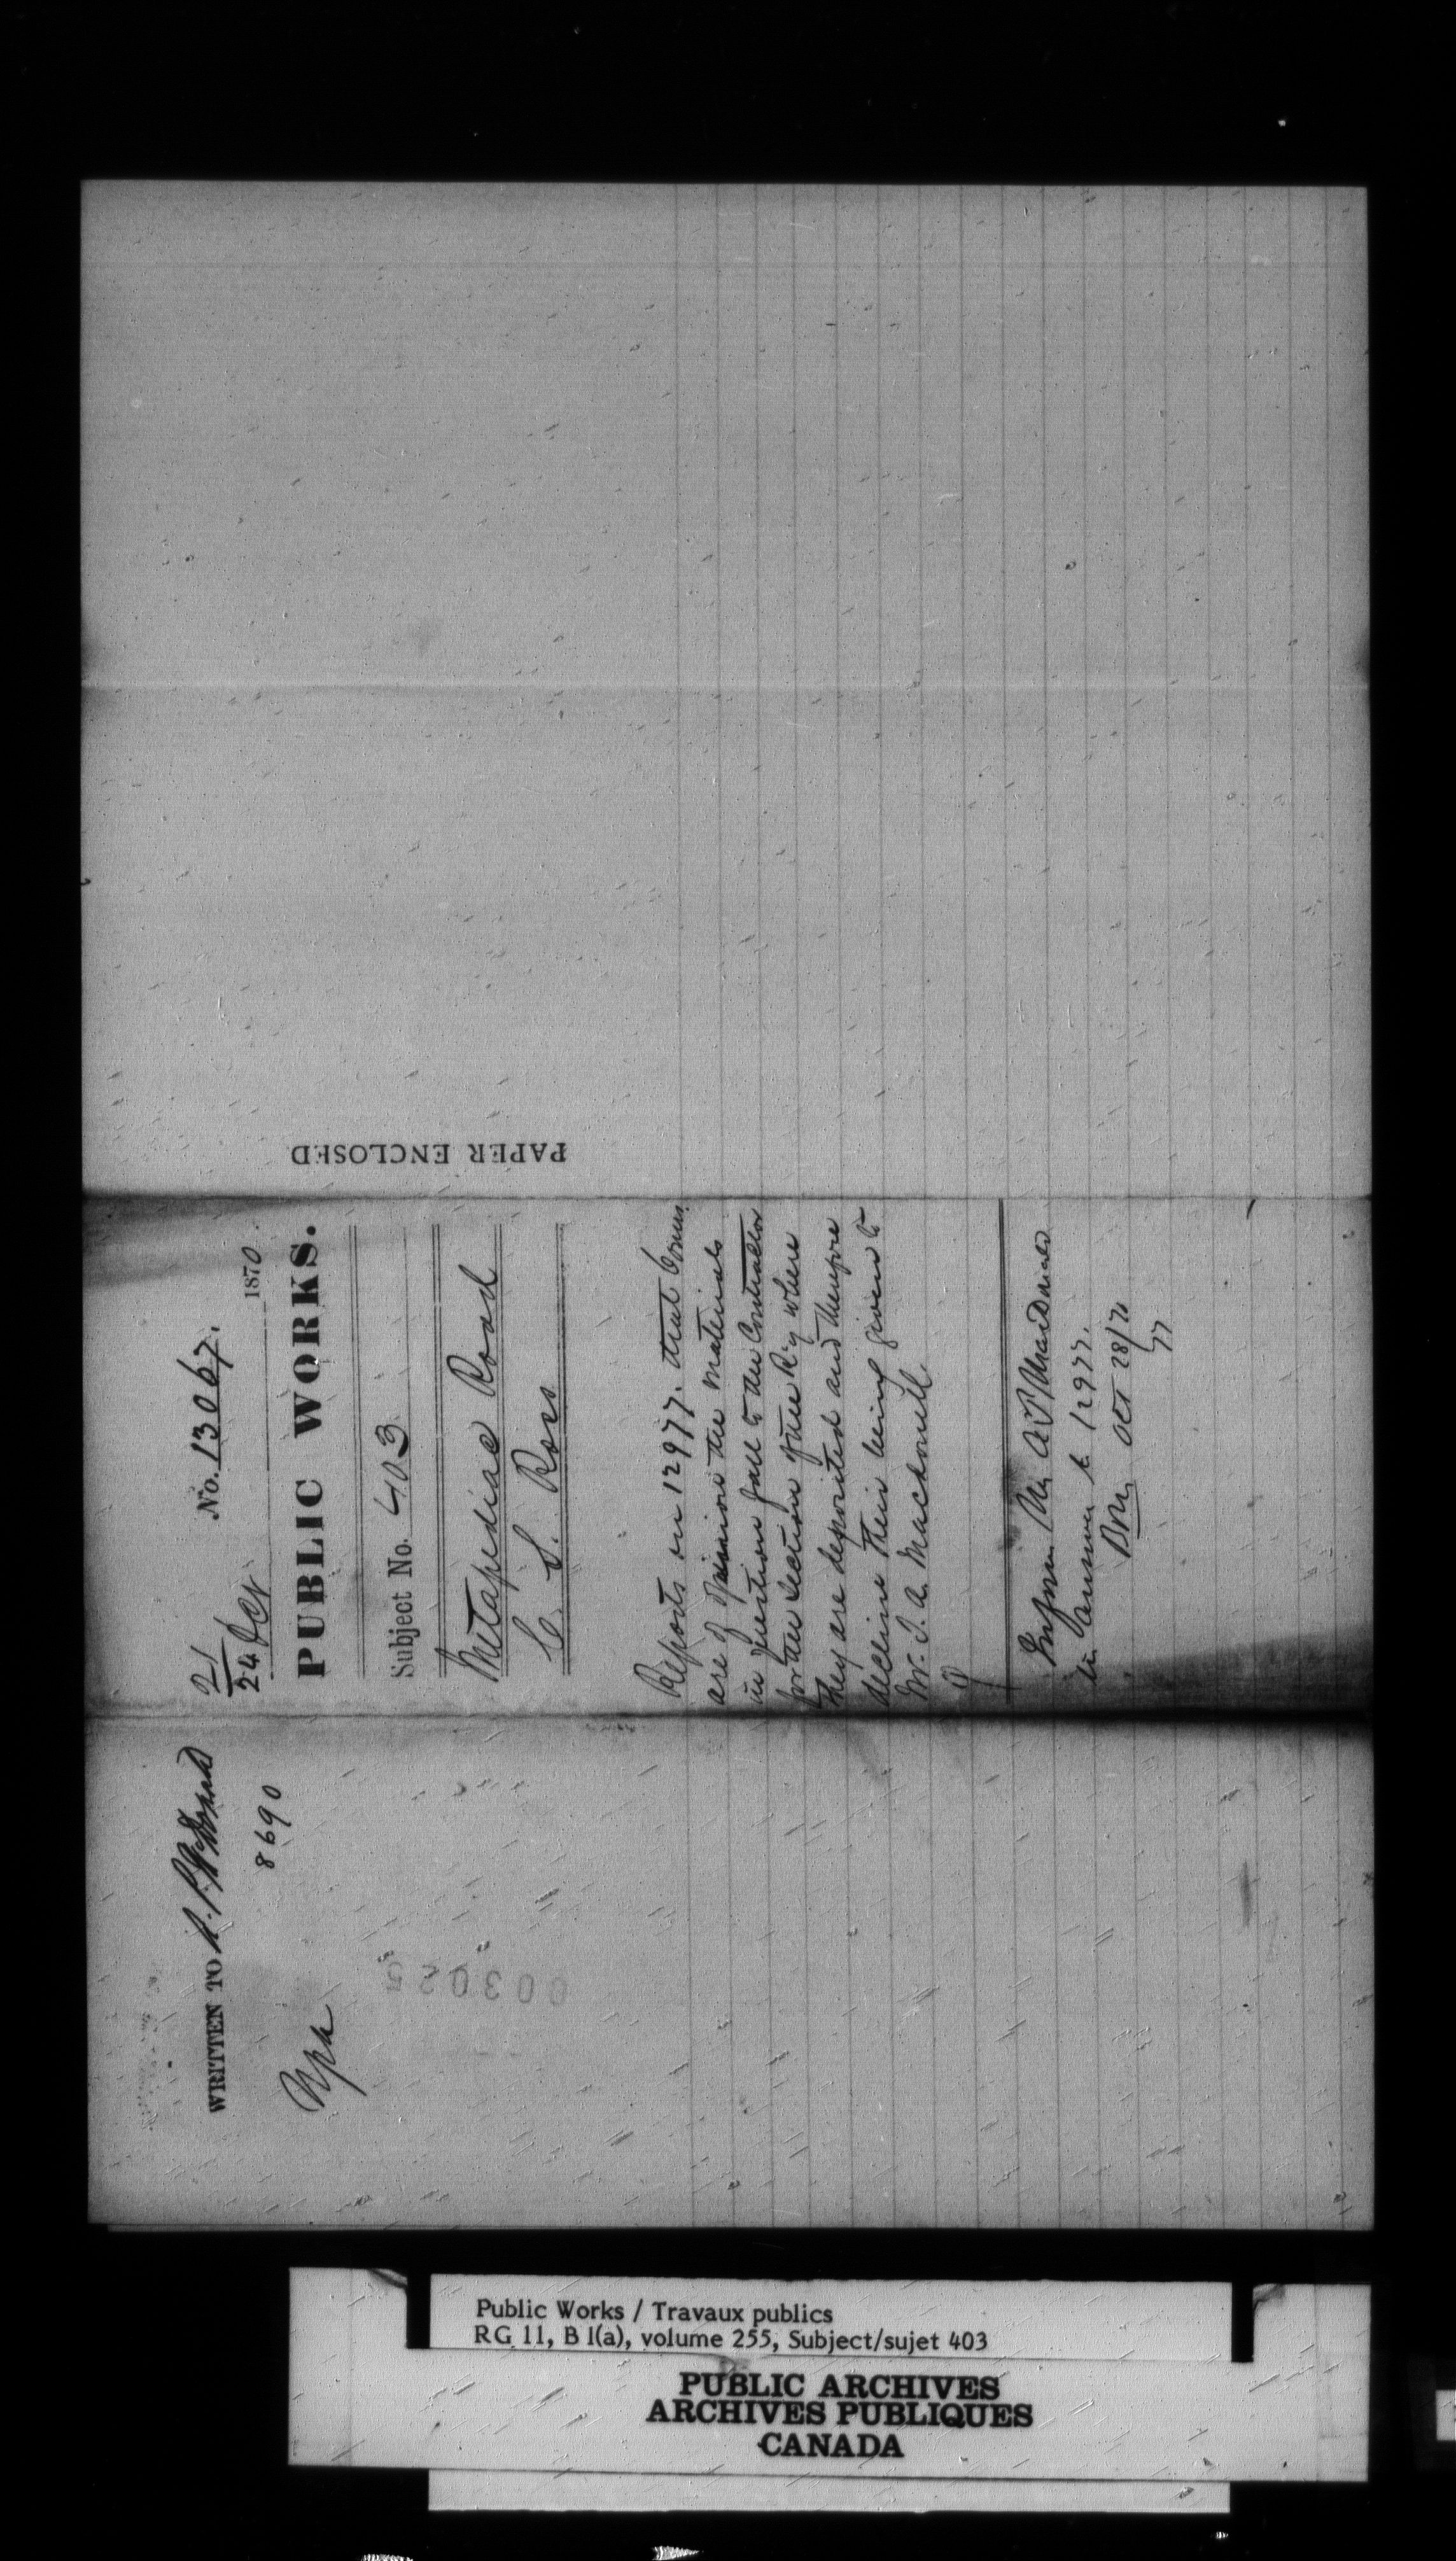 WRITTEN TO A. P. McDonald
8690
21
24 Oct
No. 13067.
1870
PUBLIC WORKS.
Subject No. 403
Metapediac Road
C. S. Ross
Reports on 12977. that Comrs.
are of opinion the materials
in question fall to the Contractor
for the Section of the Ry where
they are deposited and therefore
decline their being given to
Mr. J. A. Macdonell.
Inform Mr. A P MacDonald
in answer to 12977.
Oct 28/70
PAPER ENCLOSED
003025
Public Works / Travaux publics
RG 11, B 1(a), volume 255, Subject/sujet 403
PUBLIC ARCHIVES
ARCHIVES PUBLIQUES
CANADA